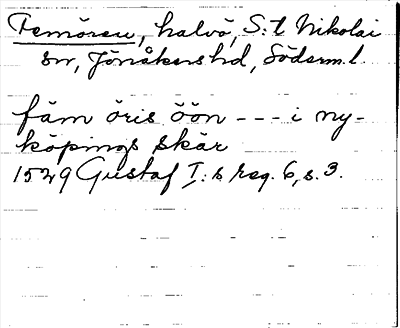 Femören, halvö, S:t Nikolai
sn, Jönåkers hd, Söderm. l.
fäm öris öön --- i ny-
köpings skär
1529 Gustaf I:s reg. 6, s. 3.